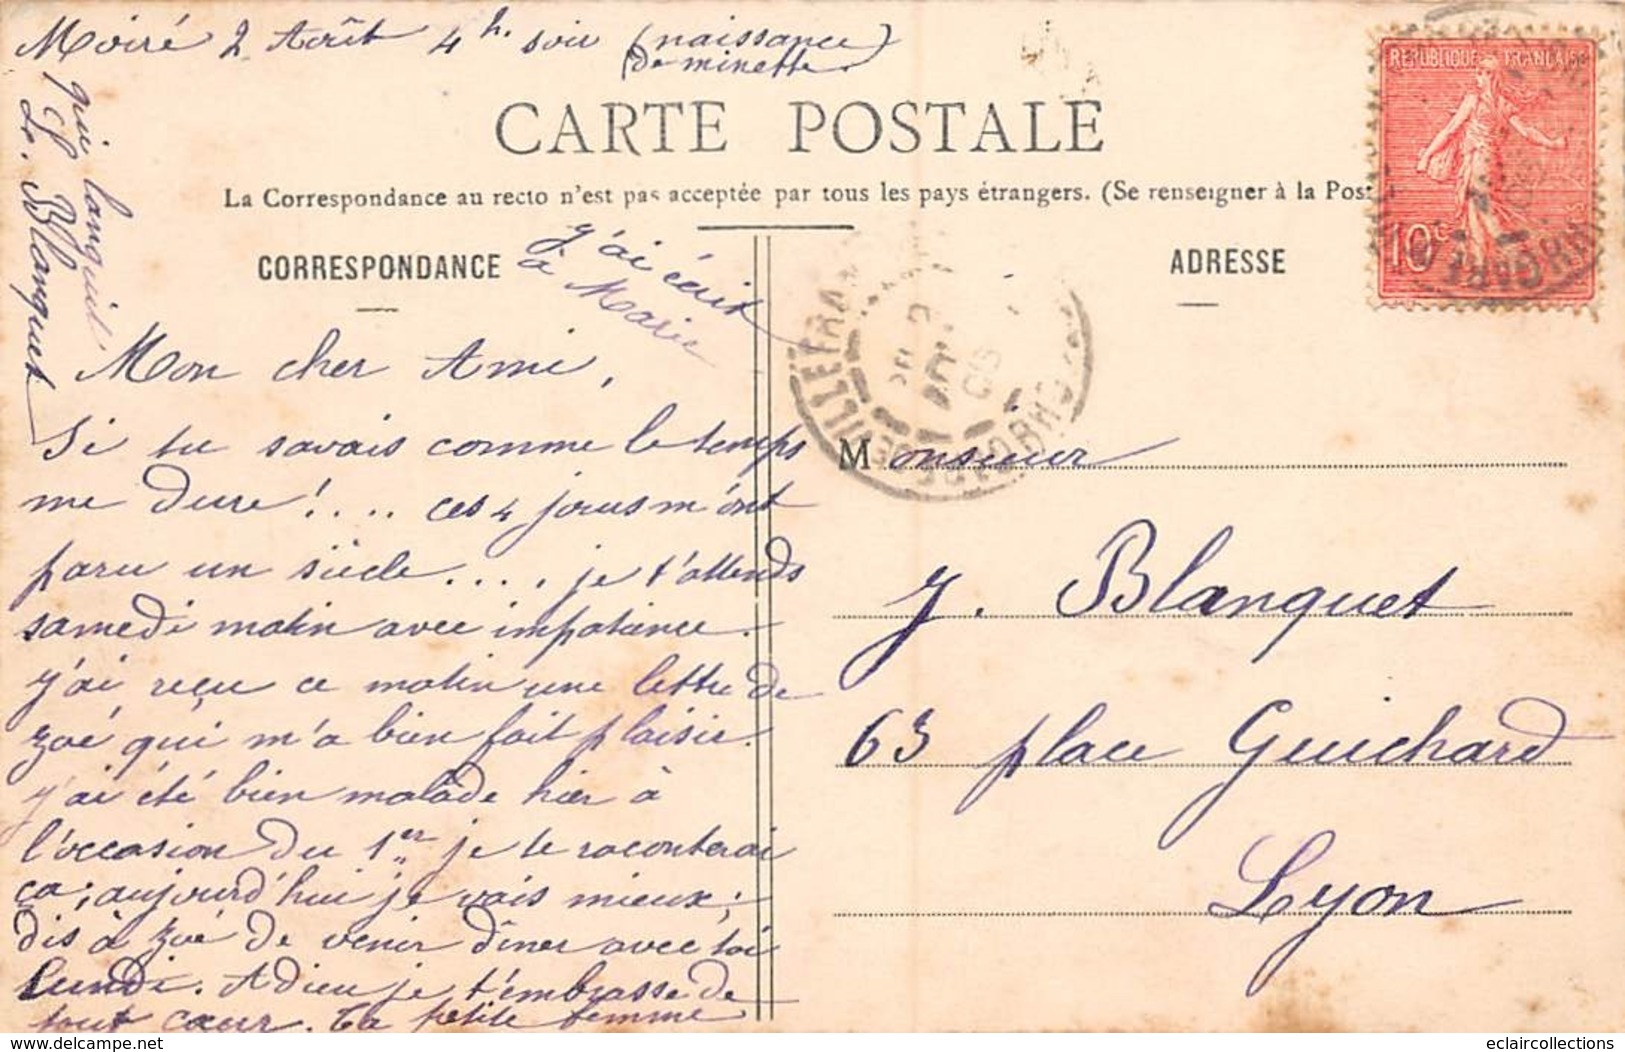 Moiré 2 Août 4 h. soir (naissance)
(de minette)
CARTE POSTALE
La Correspondance au recto n'est pas acceptée par tous les pays étrangers. (Se renseigner à la Pos
REPUBLIQUE FRANÇAISE
10c
CORRESPONDANCE
ADRESSE
j'ai écrit
à Marie
Mon cher Ami,
Si tu savais comme le temps
me dure!.... ces 4 jours m'ont
paru un siècle..... je t'attends
samedi matin avec impatience.
J'ai reçu ce matin une lettre de
Zoé qui m'a bien fait plaisir.
J'ai été bien malade hier à
l'occasion du 1er je te raconterai
ça; aujourd'hui je vais mieux;
dis à Zoé de venir dîner avec toi
lundi. Adieu je t'embrasse de
tout cœur. Ta petite femme
qui languit
L. Blanquet
Monsieur
J. Blanquet
63 place Guichard
Lyon
www.delcampe.net
eclaircollections